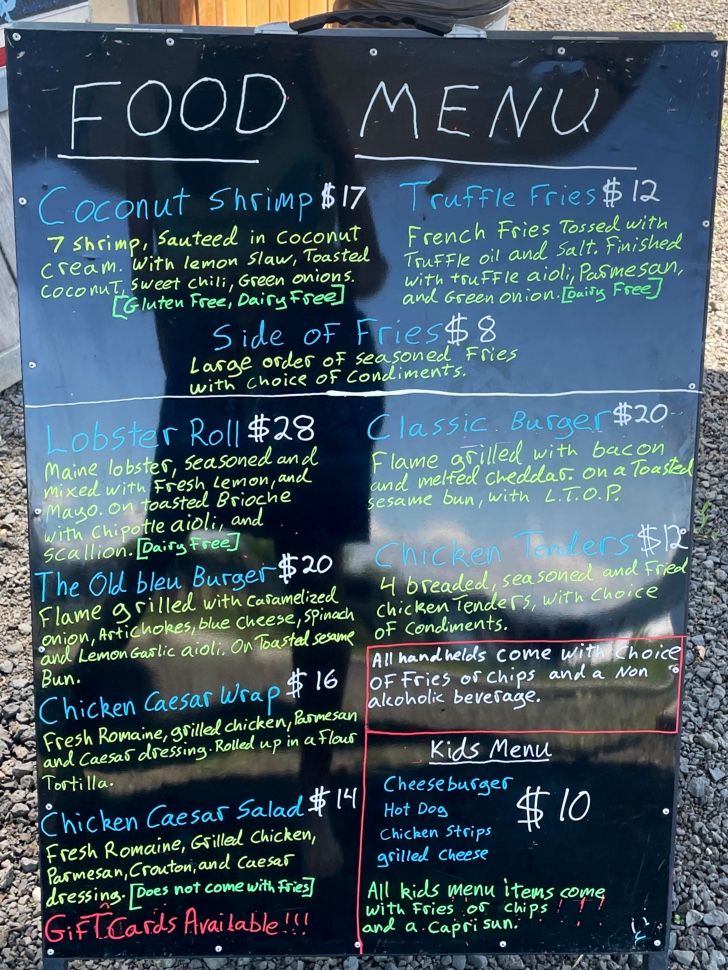 FOOD MENU
Coconut Shrimp $17
7 shrimp, Sauteed in Coconut
cream. With lemon slaw, Toasted
Coconut, sweet chili, Green onions.
[Gluten Free, Dairy Free]
Truffle Fries $12
French Fries Tossed with
Truffle oil and Salt. Finished
with truffle aioli, Parmesan,
and Green onion. [Dairy Free]
Side of Fries $8
Large order of seasoned Fries
with choice of Condiments.
Lobster Roll $28
Maine lobster, seasoned and
mixed with Fresh Lemon, and
Mayo. on toasted Brioche
with Chipotle aioli, and
scallion. [Dairy Free]
The Old bleu Burger $20
Flame grilled with Caramelized
onion, Artichokes, blue cheese, Spinach
and Lemon Garlic aioli. On Toasted sesame
Bun.
Chicken Caesar Wrap $16
Fresh Romaine, grilled chicken, Parmesan
and Caesar dressing. Rolled up in a Flour
Tortilla.
Chicken Caesar Salad $14
Fresh Romaine, Grilled Chicken,
Parmesan, Crouton, and Caesar
dressing. [Does not come with Fries]
GiFT Cards Available!!!
Classic Burger $20
Flame grilled with bacon
and melted Cheddar. on a Toasted
sesame bun, with L.T.O.P.
Chicken Tenders $12
4 breaded, seasoned and Fried
chicken Tenders, with Choice
of Condiments.
All handhelds come with Choice
OF Fries or chips and a Non
alcoholic beverage.
Kids Menu
Cheeseburger
Hot Dog
Chicken Strips
grilled cheese
$10
All kids menu items come
with Fries or chips !!!
and a Capri sun.